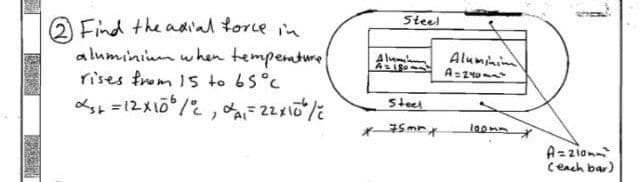 ② Find the axial force in
aluminium when temperature
rises from 15 to 65°C
αst = 12x10⁻⁶/°c, αAl = 22x10⁻⁶/°c
Steel
Aluminium
A=180mm²
Aluminium
A=240mm²
Steel
75mm
100mm
A=210mm²
(each bar)